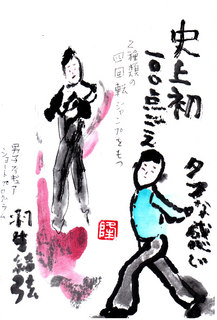 史上初
一〇〇点ごえ
タフな感じ
2種類の
四回転ジャンプをもつ
男子女子
ショートプログラム
羽生結弦
陸